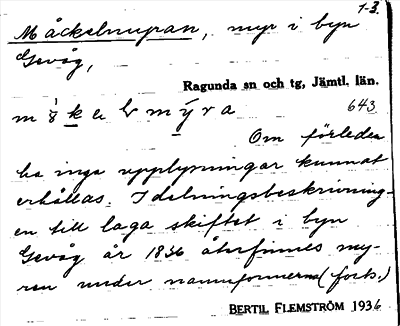 1-3.
Måckelmyran, myr i byn
Gevåg,
Ragunda sn og tg, Jämtl. län.
643
Om förleden
ha inga upplysningar kunnat
erhållas. I delningsbeskrivning-
en till laga skiftet i byn
Gevåg år 1836 återfinnes my-
ren under namnformerna (forts.)
BERTIL FLEMSTRÖM 1936